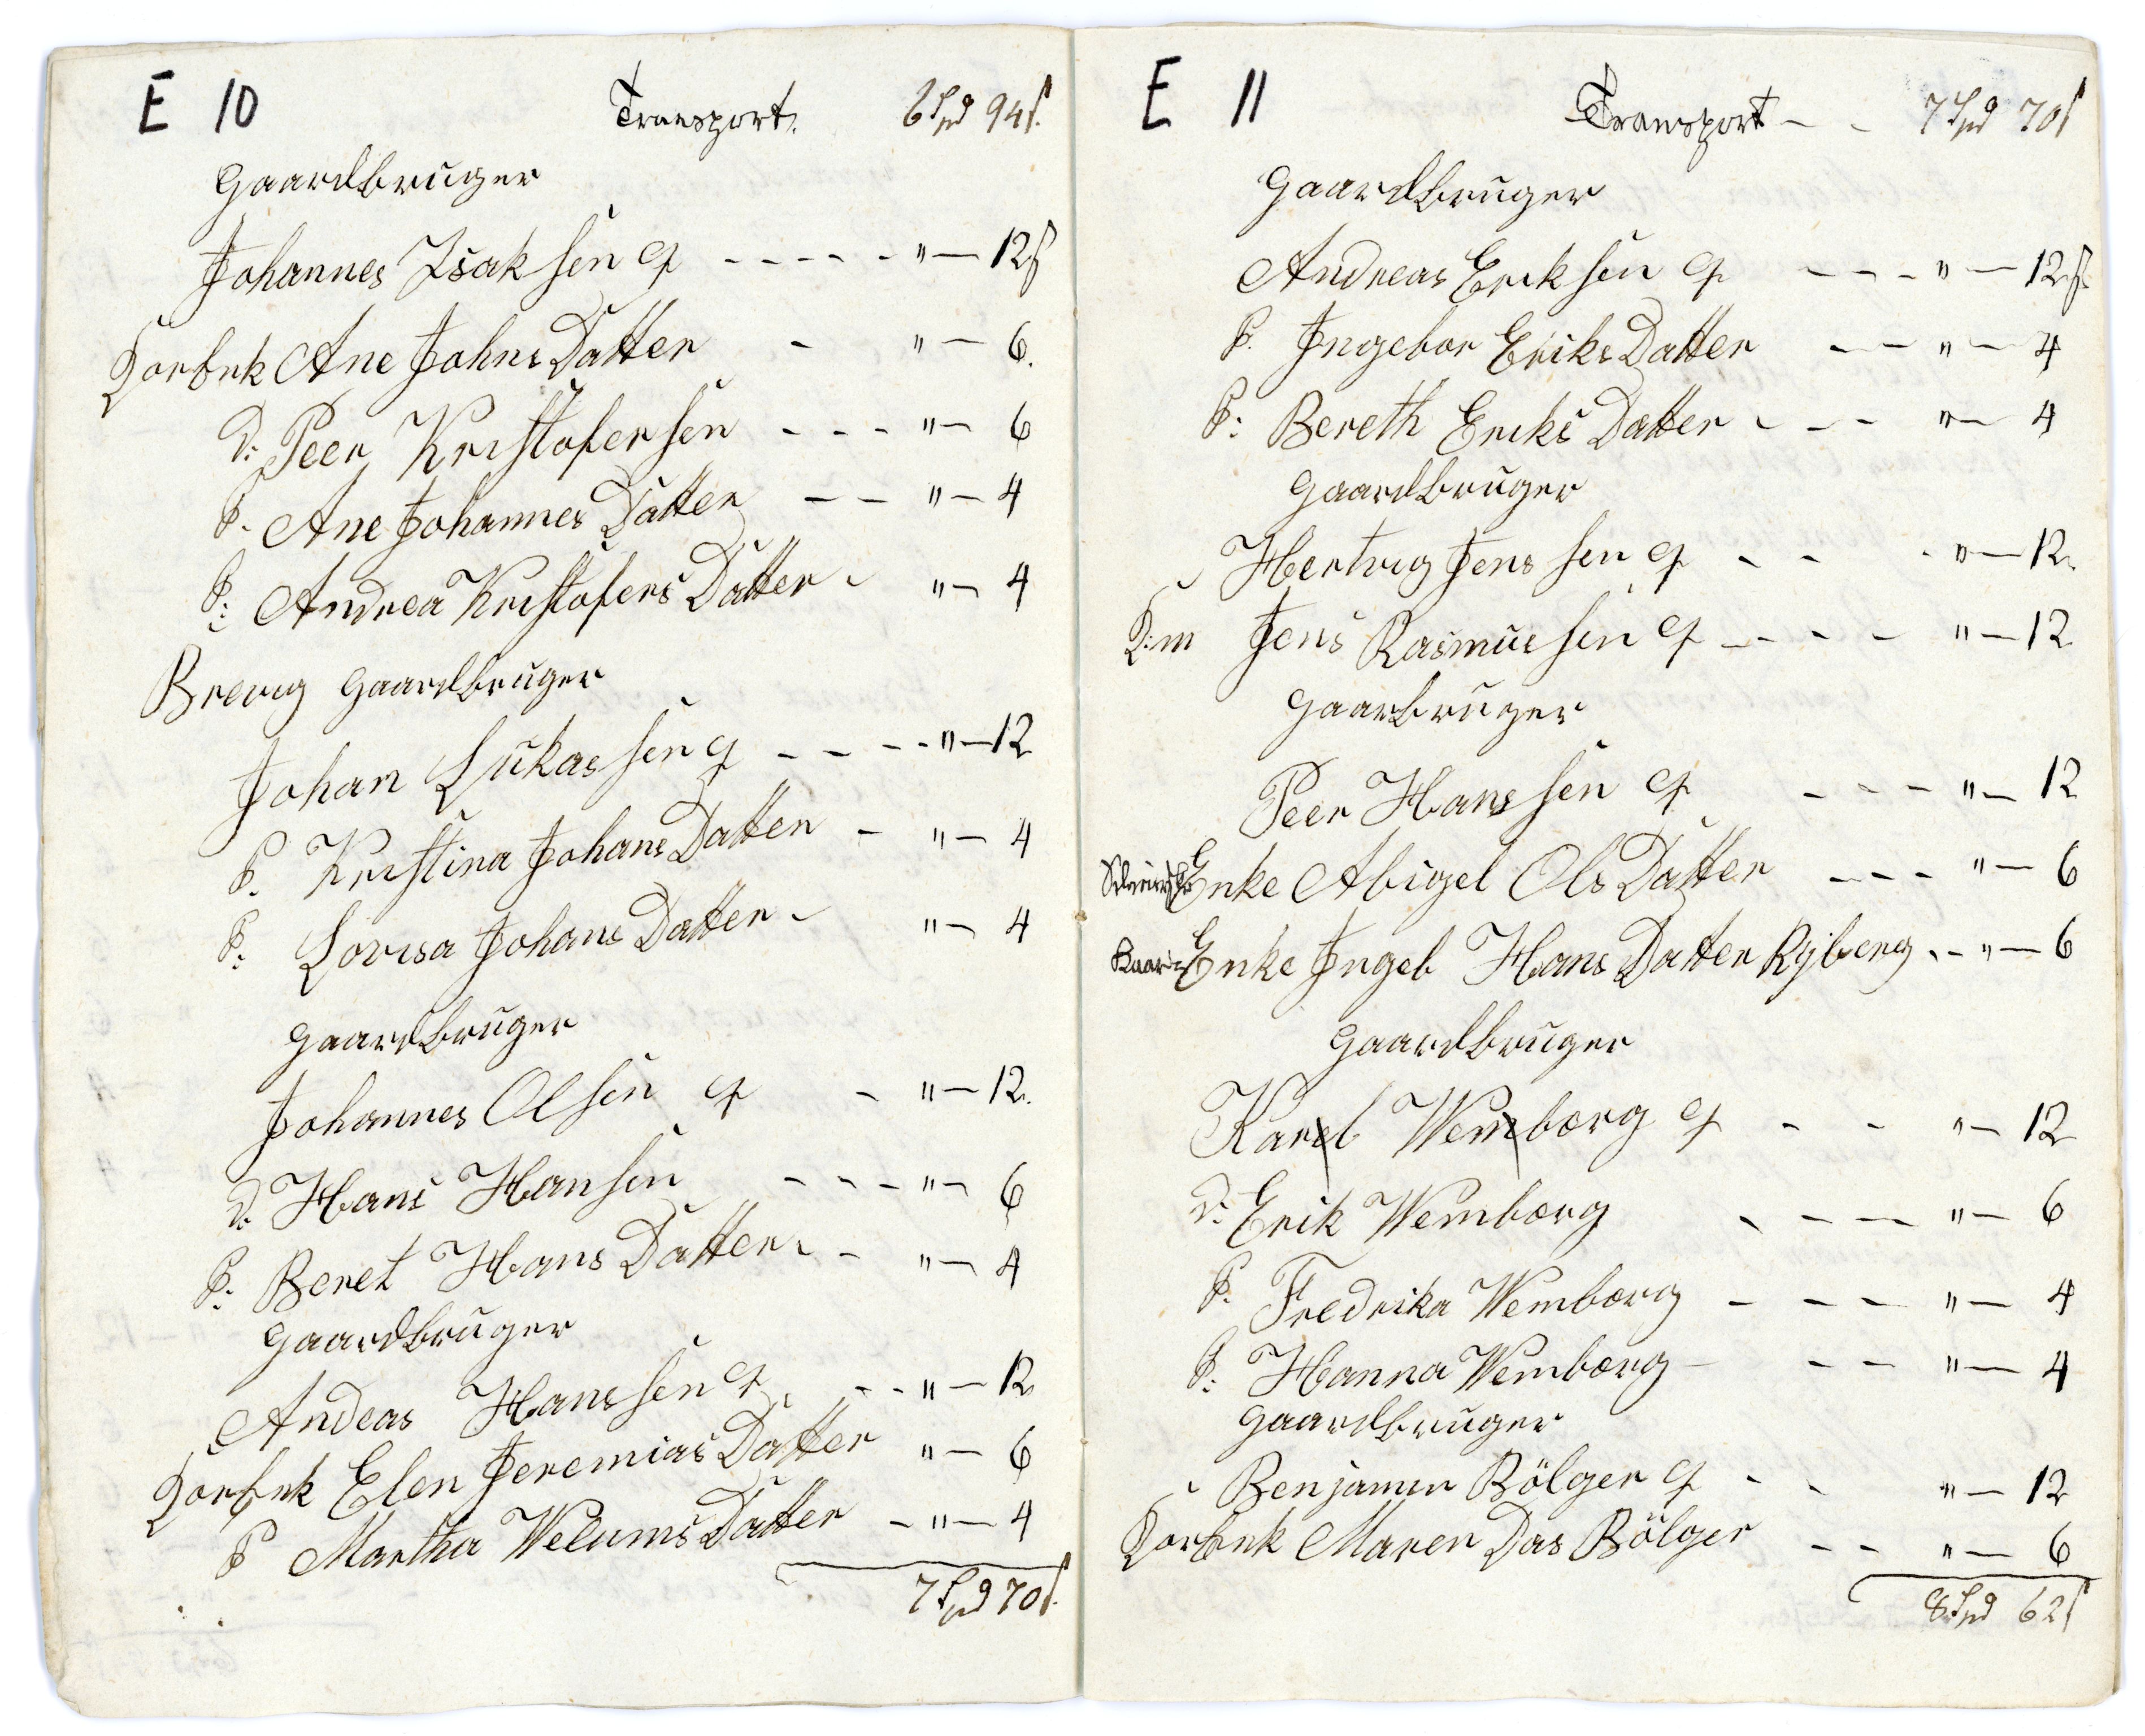 E 10 Transport. 6 Spd 94 s.
Gaardbruger
Johannes Isaksen q - - - - - " — 12 s
Ane Johns Datter - " — 6.
D: Peer Kristofersen - - - " — 6
P. Ane Johannes Datter — — " — 4
P: Andrea Kristofers Datter - " — 4
Brevig Gaardbruger
Johan Lukassen q - - - - " — 12
P. Kristina Johans Datter - " — 4
P: Lovisa Johans Datter - " — 4
Gaardbruger
Johannes Olsen q - " — 12.
D. Hans Hansen - - - " — 6
P: Beret Hans Datter - - " — 4
Gaardbruger
Andeas Hanssen q. - - " — 12
Elen Jeremias Datter " — 6
P Martha Welums Datter - " — 4
7 Spd 70 s.
E 11 Transport - - 7 Spd 70 s
Gaardbruger
Andreas Eriksen q - - - " — 12 s.
P. Ingebor Eriks Datter - - " — 4
P: Bereth Eriks Datter - - - " — 4
Gaardbruger
Hertvig Jenssen q - - - " — 12
D:m Jens Rasmussen q - - - - " — 12
Gaarbruger
Peer Hanssen q - - - " — 12
Enke Abigel Ols Datter - - - " — 6
Enke Ingeb Hans Datter Rÿberg - - " — 6
Gaardbruger
Karel Wemborg q - - " — 12
D: Erik Wemborg - - - " — 6
P. Fredrika Wemborg - - - " — 4
P: Hanna Wemborg - - - " — 4
Gaardbruger
Benjamin Bölger q - - " — 12
Maren Das Bölger - - " — 6
8 Spd 62 s